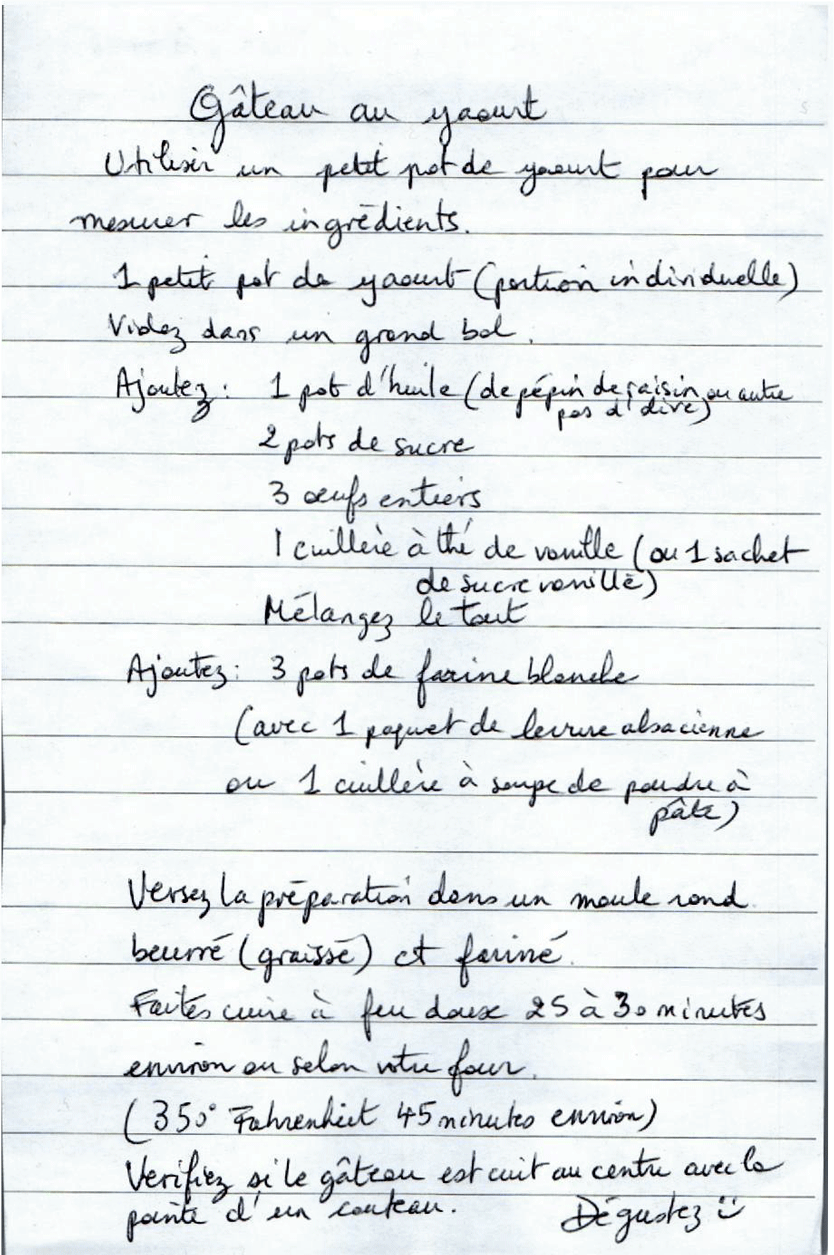 Gâteau au yaourt
Utiliser un petit pot de yaourt pour
mesurer les ingrédients.
1 petit pot de yaourt (portion individuelle)
Videz dans un grand bol.
Ajoutez : 1 pot d'huile (de pépin de raisin ou autre
pas d'olive)
2 pots de sucre
3 œufs entiers
1 cuillère à thé de vanille (ou 1 sachet
de sucre vanillé)
Mélangez le tout
Ajoutez : 3 pots de farine blanche
(avec 1 paquet de levure alsacienne
ou 1 cuillère à soupe de poudre à
pâte)
Versez la préparation dans un moule rond
beurré (graissé) et fariné.
Faites cuire à feu doux 25 à 30 minutes
environ ou selon votre four.
(350° Fahrenheit 45 minutes environ)
Verifiez si le gâteau est cuit au centre avec la
pointe d'un couteau. Dégustez :)